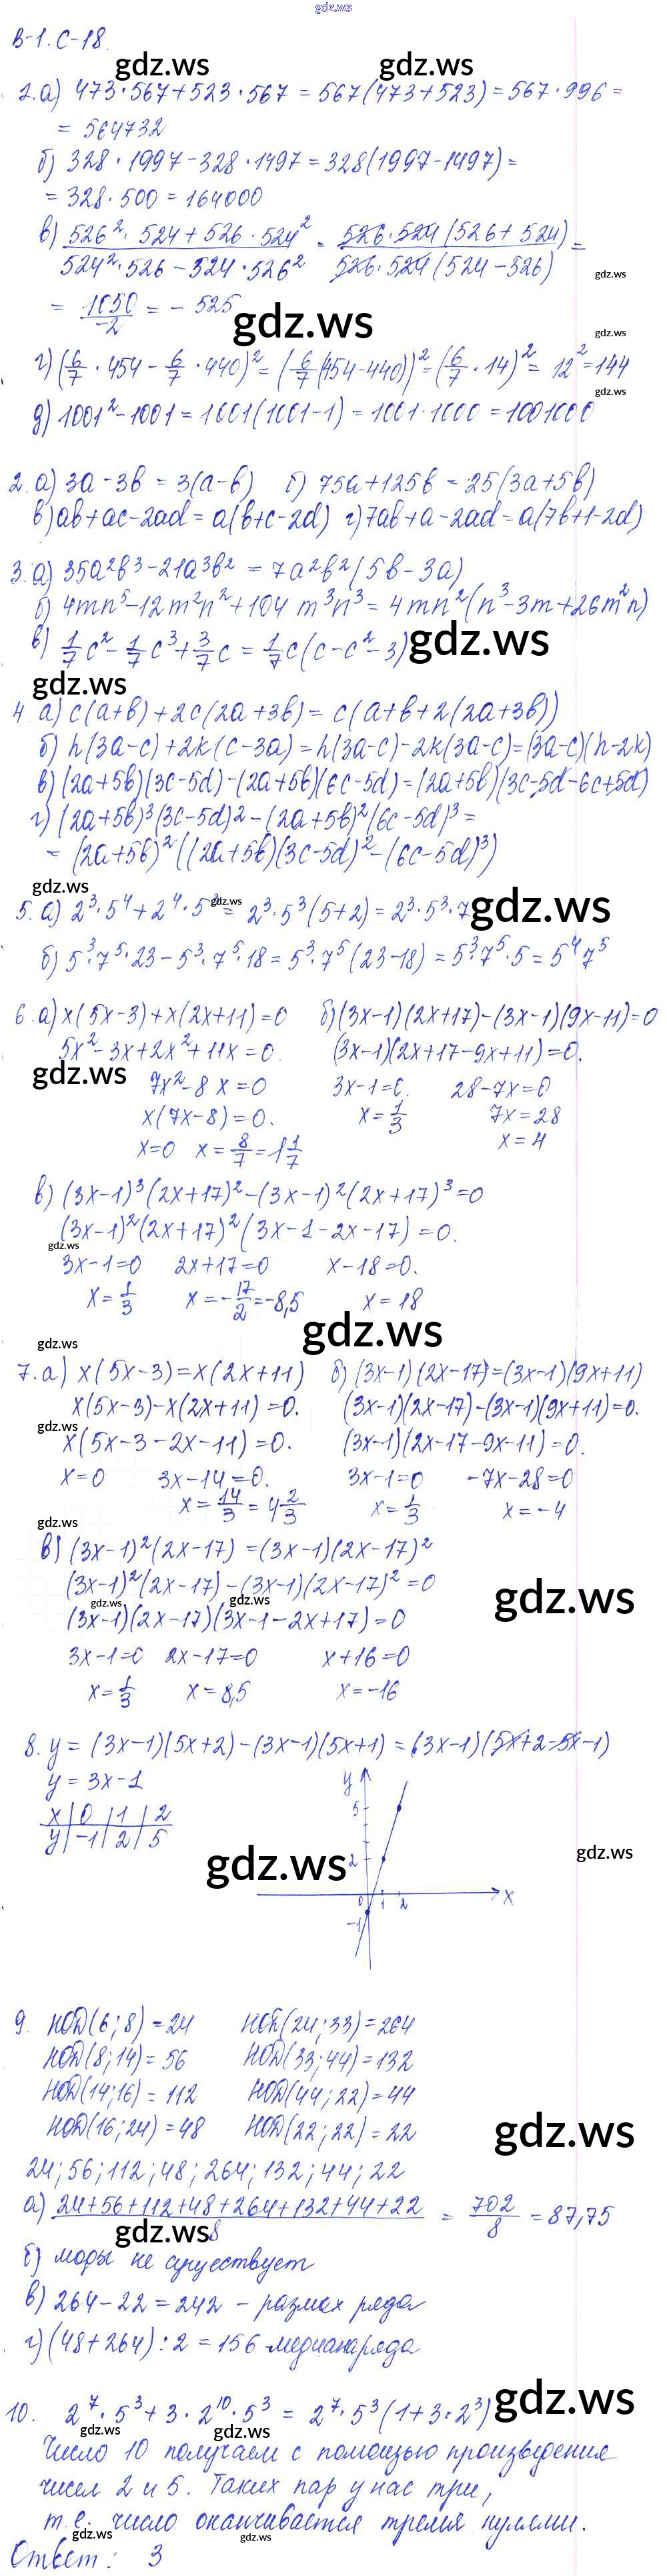 gdz.ws
В-1. С-18.
gdz.ws gdz.ws
2.а) 473·567+523·567 = 567(473+523) = 567·996 =
= 564732
б) 328·1997-328·1497 = 328(1997-1497) =
= 328·500 = 164000
в) (526²·524+526·524²)/(524²·526-524·526²) = (526·524(526+524))/(526·524(524-526)) =
gdz.ws
= 1050/-2 = -525
gdz.ws
gdz.ws
г) (6/7·454-6/7·440)² = (6/7(454-440))² = (6/7·14)² = 12² = 144
gdz.ws
д) 1001²-1001 = 1001(1001-1) = 1001·1000 = 1001000
2. а) 3a-3b = 3(a-b) б) 75a+125b = 25(3a+5b)
в) ab+ac-2ad = a(b+c-2d) г) 7ab+a-2ad = a(7b+1-2d)
3. а) 35a²b³-21a³b² = 7a²b²(5b-3a)
б) 4mn⁵-12m²n²+104m³n³ = 4mn²(n³-3m+26m²n)
в) 1/7c²-1/7c³+3/7c = 1/7c(c-c²-3)
gdz.ws
gdz.ws
4. а) c(a+b)+2c(2a+3b) = c(a+b+2(2a+3b))
б) h(3a-c)+2k(c-3a) = h(3a-c)-2k(3a-c) = (3a-c)(h-2k)
в) (2a+5b)(3c-5d)-(2a+5b)(6c-5d) = (2a+5b)(3c-5d-6c+5d)
г) (2a+5b)³(3c-5d)²-(2a+5b)²(6c-5d)³ =
= (2a+5b)²((2a+5b)(3c-5d)²-(6c-5d)³)
gdz.ws
5. а) 2³·5⁴+2⁴·5³ = 2³·5³(5+2) = 2³·5³·7
gdz.ws gdz.ws
б) 5³·7⁵·23-5³·7⁵·18 = 5³·7⁵(23-18) = 5³·7⁵·5 = 5⁴7⁵
6. а) x(5x-3)+x(2x+11)=0 б) (3x-1)(2x+17)-(3x-1)(9x-11)=0
5x²-3x+2x²+11x=0. (3x-1)(2x+17-9x+11)=0.
gdz.ws
7x²-8x=0 3x-1=0. 28-7x=0
x(7x-8)=0. x=1/3 7x=28
x=0 x=8/7=1 1/7 x=4
в) (3x-1)³(2x+17)²-(3x-1)²(2x+17)³=0
(3x-1)²(2x+17)²(3x-1-2x-17)=0.
gdz.ws
3x-1=0 2x+17=0 x-18=0.
x=1/3 x=-17/2=-8,5 x=18
gdz.ws
gdz.ws
7. а) x(5x-3)=x(2x+11) б) (3x-1)(2x-17)=(3x-1)(9x+11)
x(5x-3)-x(2x+11)=0. (3x-1)(2x-17)-(3x-1)(9x+11)=0.
gdz.ws
x(5x-3-2x-11)=0. (3x-1)(2x-17-9x-11)=0.
x=0 3x-14=0. 3x-1=0 -7x-28=0
x=14/3=4 2/3 x=1/3 x=-4
gdz.ws
в) (3x-1)²(2x-17)=(3x-1)(2x-17)²
(3x-1)²(2x-17)-(3x-1)(2x-17)²=0
gdz.ws gdz.ws gdz.ws
(3x-1)(2x-17)(3x-1-2x+17)=0
3x-1=0 2x-17=0 x+16=0
x=1/3 x=8,5 x=-16
8. y = (3x-1)(5x+2)-(3x-1)(5x+1) = (3x-1)(5x+2-5x-1)
y = 3x-1
x | 0 | 1 | 2
y | -1 | 2 | 5
y
5
2
0 1 2 x
-1
gdz.ws gdz.ws
9. НОД(6;8)=24 НОК(24;33)=264
НОД(8;14)=56 НОД(33;44)=132
НОД(14;16)=112 НОД(44;22)=44
НОД(16;24)=48 НОД(22;22)=22
gdz.ws
24; 56; 112; 48; 264; 132; 44; 22
а) (24+56+112+48+264+132+44+22)/8 = 702/8 = 87,75
gdz.ws
б) моды не существует
в) 264-22=242 - размах ряда
г) (48+264):2=156 медиана ряда
10. 2⁷·5³+3·2¹⁰·5³ = 2⁷·5³(1+3·2³)
gdz.ws
gdz.ws gdz.ws
Число 10 получаем с помощью произведения
чисел 2 и 5. Таких пар у нас три,
т.е. число оканчивается тремя нулями.
gdz.ws gdz.ws
Ответ: 3